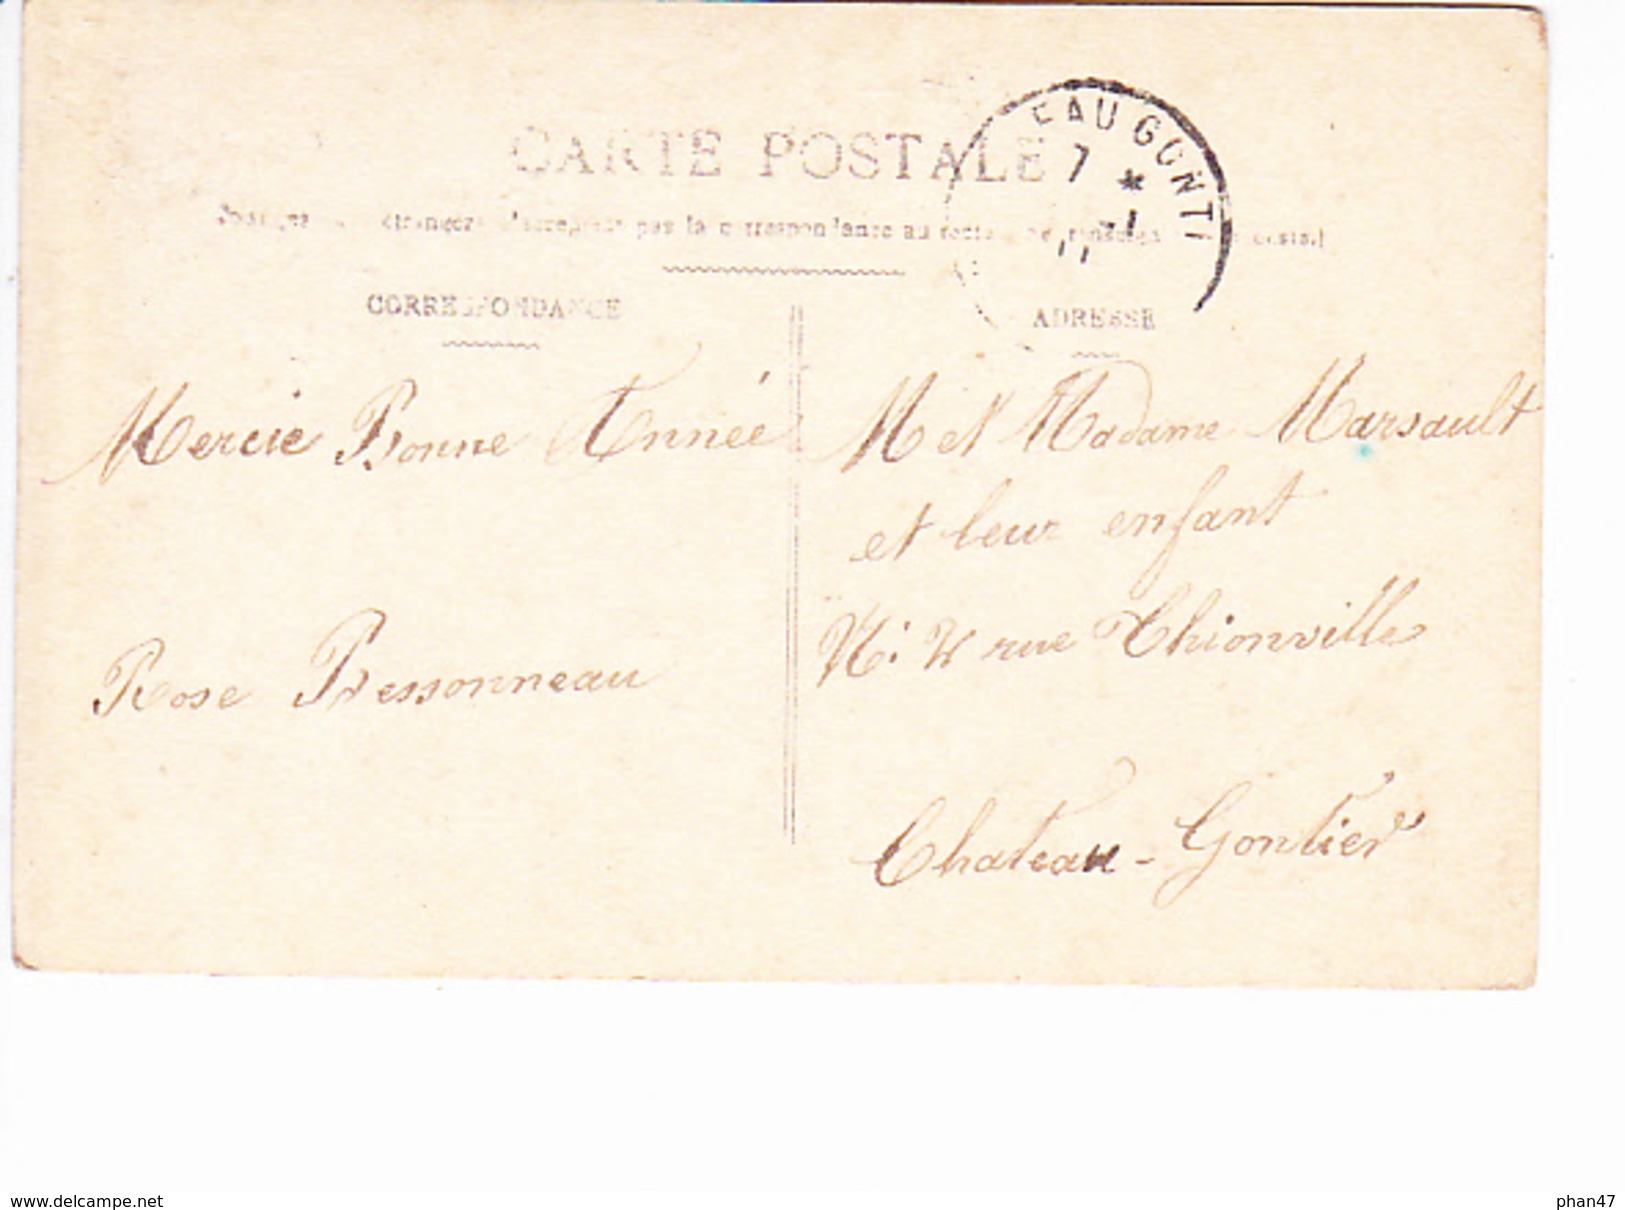 CARTE POSTALE
pas la correspondance au recto
EAU GONTI
7 *
CORRESPONDANCE
ADRESSE
Mercie Bonne Année
Rose Bessonneau
M et Madame Marsault
et leur enfant
rue Thionville
Chateau-Gontier
www.delcampe.net
phan47